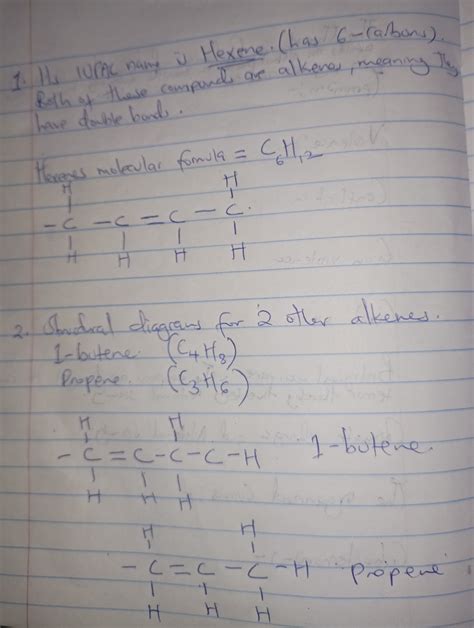 1. Its IUPAC name is Hexene. (has 6-Carbons).
Both of these compounds are alkenes, meaning they
have double bonds.
Hexenes molecular formula = C6H12
H H
- C - C = C - C
H H H H
2. Structural diagrams for 2 other alkenes.
1-butene (C4H8)
Propene. (C3H6)
H H
- C = C - C - C - H 1-butene.
H H H
H H
- C = C - C - H propene
H H H